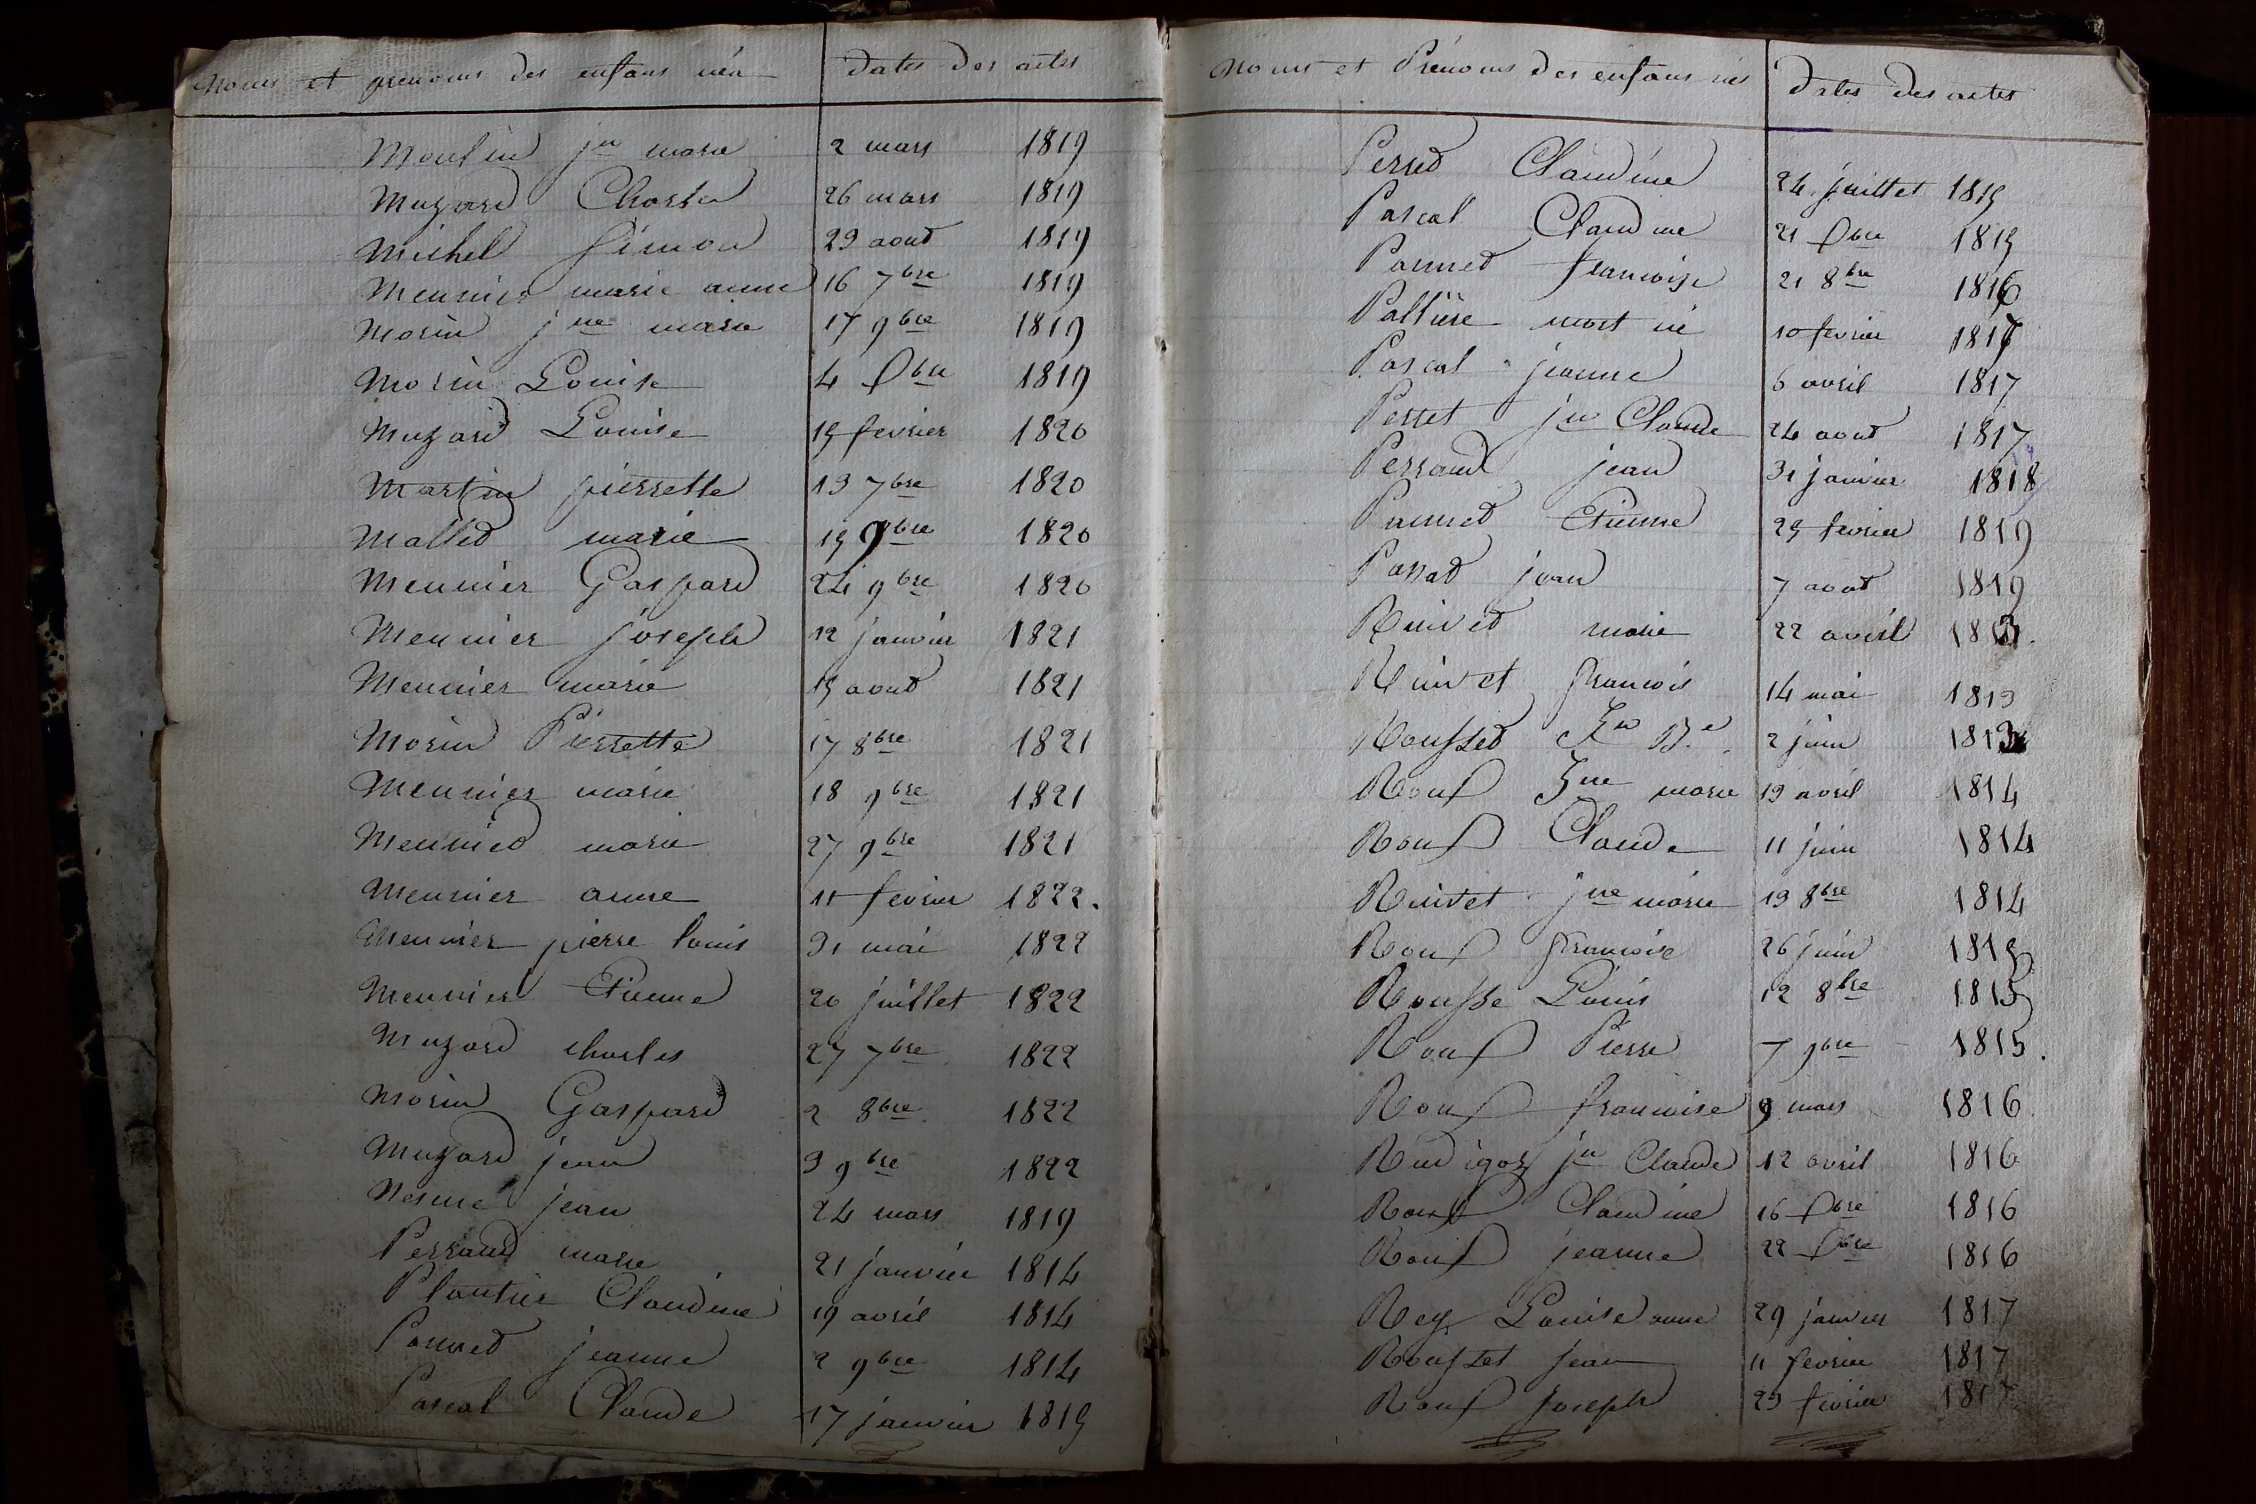 Noms et prenoms des enfans nés
dates des actes
Moulin jn marie 2 mars 1819
Muzard Charles 26 mars 1819
Michel Simon 29 aout 1819
Meunier marie anne 16 7bre 1819
Morin jne marie 17 9bre 1819
Morin Louise 4 Xbre 1819
Muzard Louise 15 fevrier 1820
Martin pierrette 13 7bre 1820
Mallet marie 15 9bre 1820
Meunier Gaspard 24 9bre 1820
Meunier joseph 12 janvier 1821
Meunier marie 15 aout 1821
Morin Pierrette 17 8bre 1821
Meunier marie 18 9bre 1821
Meunier marie 27 9bre 1821
Meunier anne 11 fevrier 1822.
Meunier pierre louis 31 mai 1822
Meunier Etienne 20 juillet 1822
Muzard charles 27 7bre 1822
Morin Gaspard 2 8bre 1822
Muzard jean 9 9bre 1822
Nesme jean 24 mars 1819
Perraud marie 21 janvier 1814
Plantier Claudine 19 avril 1814
Pannet jeanne 2 9bre 1814
Pascal Claude 17 janvier 1815
Noms et Prénoms des enfans nés
Dates des actes
Perret Claudine 24 juillet 1815
Pascal Claudine 21 Xbre 1815
Pannet francoise 21 8bre 1816
Pallière mort né 10 fevrier 1817
Pascal jeanne 6 avril 1817
Perret jn Claude 24 aout 1817
Perraud jean 31 janvier 1818
Pannet Etienne 25 fevrier 1819
Passat jean 7 aout 1819
Ruivet marie 22 avril 1813.
Ruivet francois 14 mai 1813
Rousset Jn Bte 2 juin 1813
Roux Jne marie 19 avril 1814
Roux Claude 11 juin 1814
Ruivet jne marie 19 8bre 1814
Roux francoise 26 juin 1815
Rousse Louis 12 8bre 1815
Roux Pierre 7 9bre 1815.
Roux francoise 9 mars 1816.
Rudigoz jn Claude 12 avril 1816
Roux Claudine 16 Xbre 1816
Roux jeanne 22 Xbre 1816
Rey Louise anne 29 janvier 1817
Rousset jean 11 fevrier 1817
Roux joseph 23 fevrier 1817